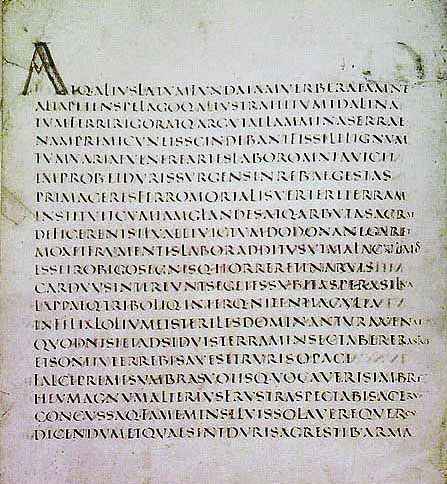 ATQ ALIVS LATVM FVNDA IAM VERBERAT AMNE
ALTA PETENS PELAGOQ ALIVS TRAHIT VMIDA LINA
TVM FERRI RIGOR ATQ ARGVTAE LAMINA SERRAE
NAM PRIMI CVNEIS SCINDEBANT FISSILE LIGNVM
TVM VARIAE VENERE ARTES LABOR OMNIA VICIT
IMPROBVS ET DVRIS VRGENS IN REBVS EGESTAS
PRIMA CERES FERRO MORTALIS VERTERE TERRAM
INSTITVIT CVM IAM GLANDES ATQ ARBVTA SACRAE
DEFICERENT SILVAE ET VICTVM DODONA NEGARET
MOX ET FRVMENTIS LABOR ADDITVS VT MALA CVLMOS
ESSET ROBIGO SEGNISQ HORRERET IN ARVIS
CARDVVS INTEREVNT SEGETES SVBIT ASPERA SILVA
LAPPAEQ TRIBOLIQ INTERQ NITENTIA CVLTA
INFELIX LOLIVM ET STERILES DOMINANTVR AVENAE
QVOD NISI ET ADSIDVIS TERRAM INSECTABERE RASTRIS
ET SONITV TERREBIS AVES ET RVRIS OPACI
FALCE PREMES VMBRAS VOTISQ VOCAVERIS IMBRE
HEV MAGNVM ALTERIVS FRVSTRA SPECTABIS ACERVOM
CONCVSSAQ FAMEM IN SILVIS SOLAVERE QVERCV
DICENDVM ET QVAE SINT DVRIS AGRESTIB ARMA